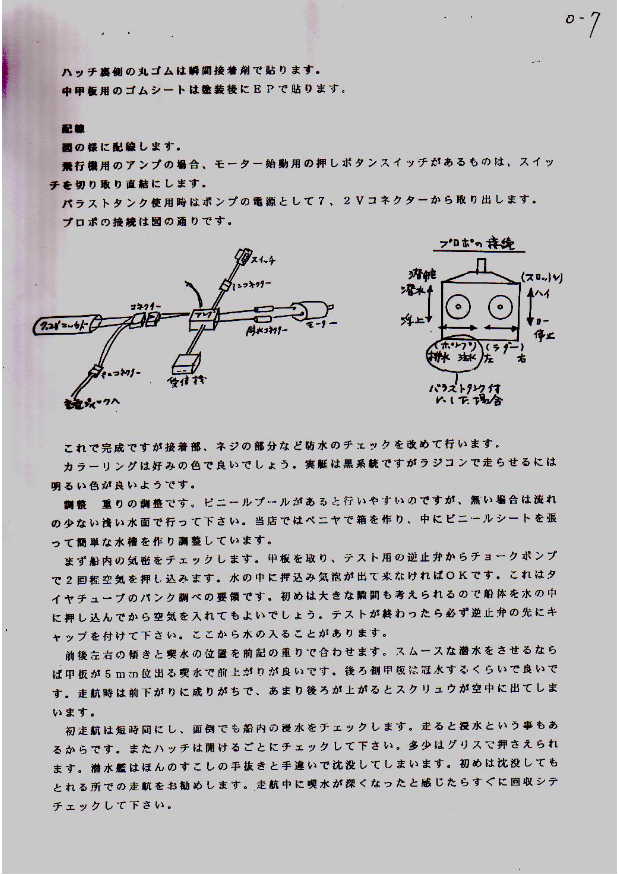 0-7
ハッチ裏側の丸ゴムは瞬間接着剤で貼ります。
中甲板用のゴムシートは塗装後にEPで貼ります。
配線
図の様に配線します。
飛行機用のアンプの場合、モーター始動用の押しボタンスイッチがあるものは、スイッ
チを切り取り直結にします。
バラストタンク使用時はポンプの電源として7、2Vコネクターから取り出します。
プロポの接続は図の通りです。
スイッチ
ミニコネクター
コネクター
アンプ
モーター
防水コネクター
受信機
ミニコネクター
プロポの接続
潜舵
潜水
浮上
(スロットル)
ハイ
ロー
停止
(ポンプ)
排水 注水
(ラダー)
左 右
バラストタンク付
にした場合
これで完成ですが接着部、ネジの部分など防水のチェックを改めて行います。
カラーリングは好みの色で良いでしょう。実艇は黒系統ですがラジコンで走らせるには
明るい色が良いようです。
調整 重りの調整です。ビニールプールがあると行いやすいのですが、無い場合は流れ
の少ない浅い水面で行って下さい。当店ではベニヤで箱を作り、中にビニールシートを張
って簡単な水槽を作り調整しています。
まず船内の気密をチェックします。甲板を取り、テスト用の逆止弁からチョークポンプ
で2回程空気を押し込みます。水の中に押込み気泡が出て来なければOKです。これはタ
イヤチューブのパンク調べの要領です。初めは大きな隙間も考えられるので船体を水の中
に押し込んでから空気を入れてもよいでしょう。テストが終わったら必ず逆止弁の先にキ
ャップを付けて下さい。ここから水の入ることがあります。
前後左右の傾きと喫水の位置を前記の重りで合わせます。スムースな潜水をさせるなら
ば甲板が5mm位出る喫水で前上がりが良いです。後ろ側甲板は冠水するくらいで良いで
す。走航時は前下がりに成りがちで、あまり後ろが上がるとスクリュウが空中に出てしま
います。
初走航は短時間にし、面倒でも船内の浸水をチェックします。走ると浸水という事もあ
るからです。またハッチは開けるごとにチェックして下さい。多少はグリスで押さえられ
ます。潜水艦はほんのすこしの手抜きと手違いで沈没してしまいます。初めは沈没しても
とれる所での走航をお勧めします。走航中に喫水が深くなったと感じたらすぐに回収シテ
チェックして下さい。